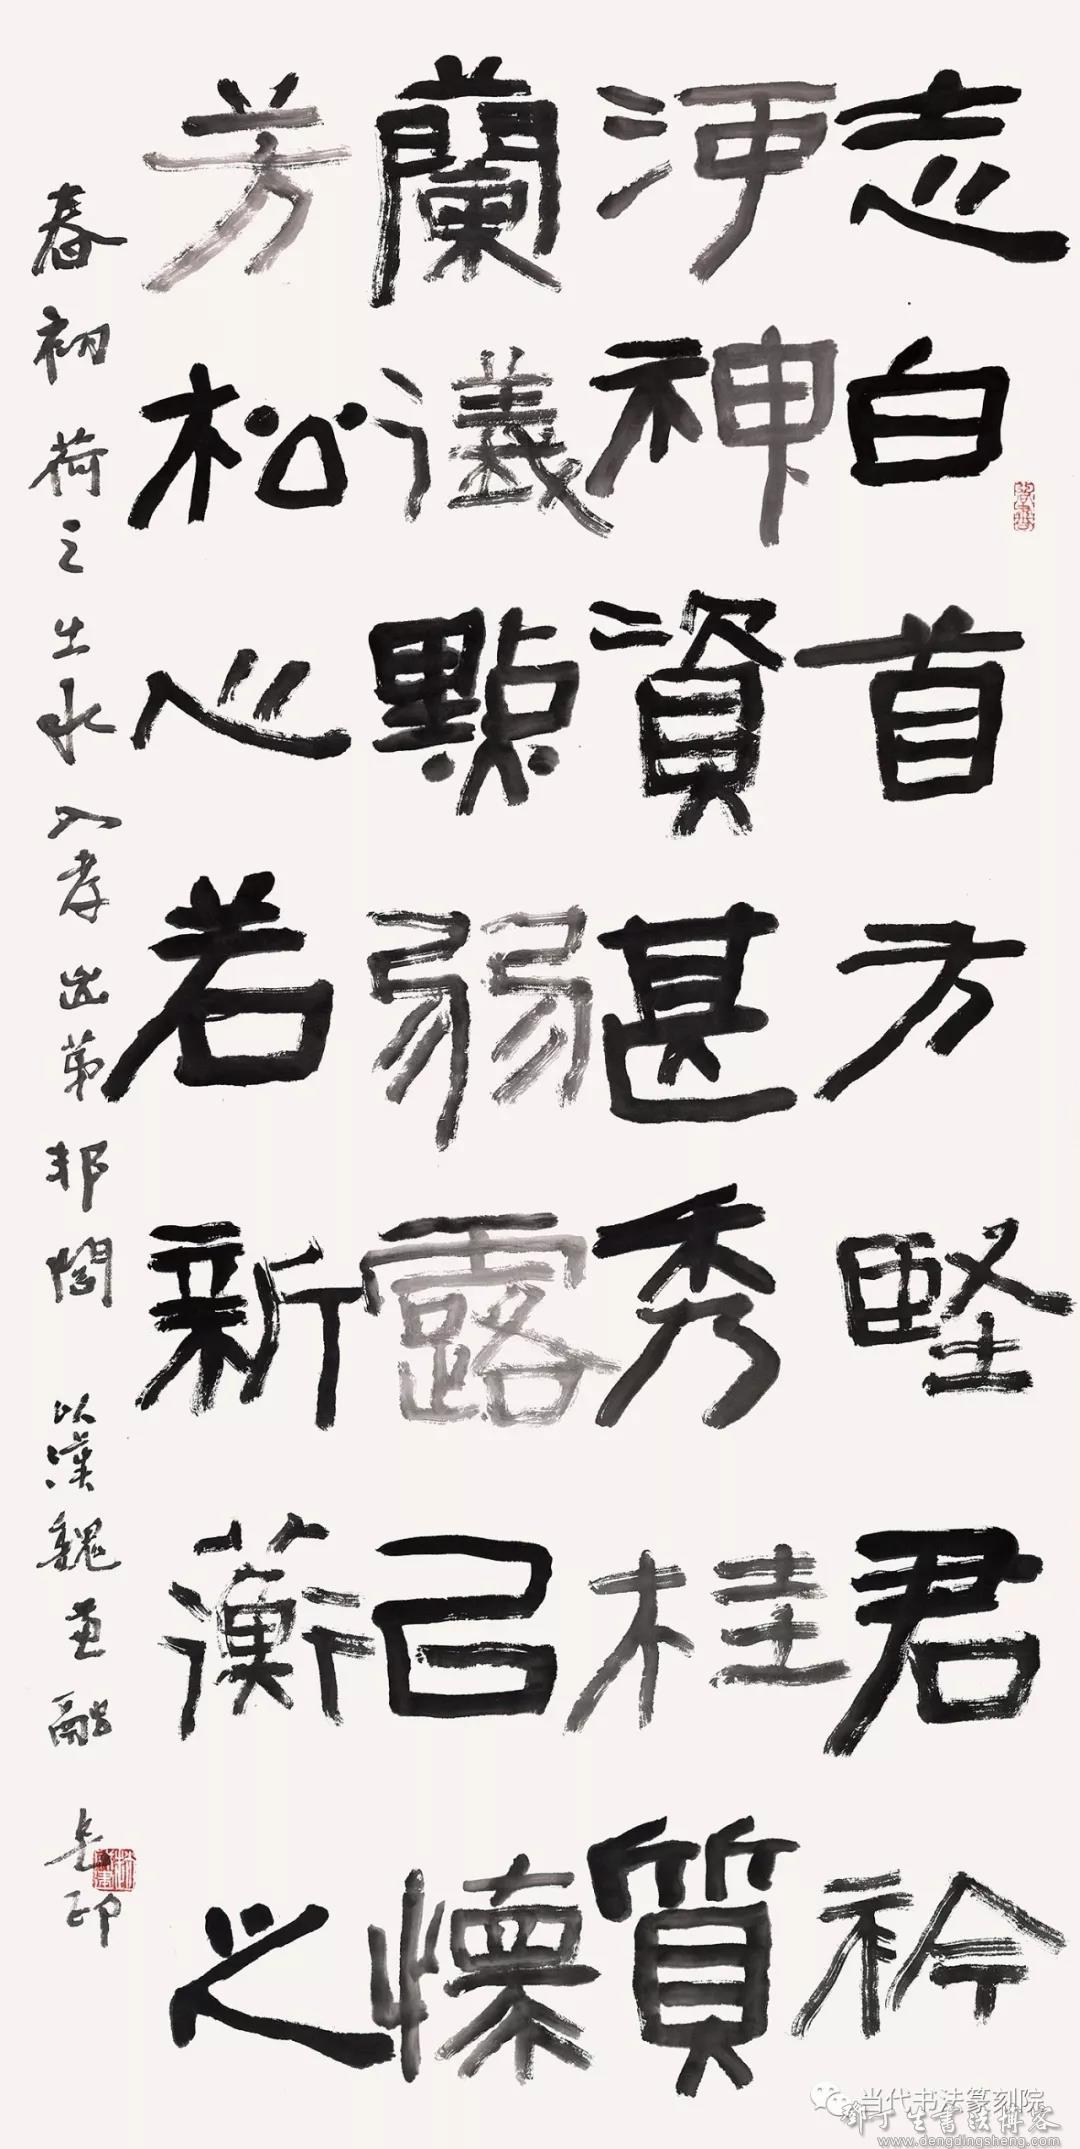 志白首方堅君衿
淨神資甚秀桂質
蘭議點弱露己懷
芳松心若新蘅之
春初荷之出水入孝出第邦閭以漢魏並融
当代书法篆刻院
邓丁生書法博客
www.dengdingsheng.com